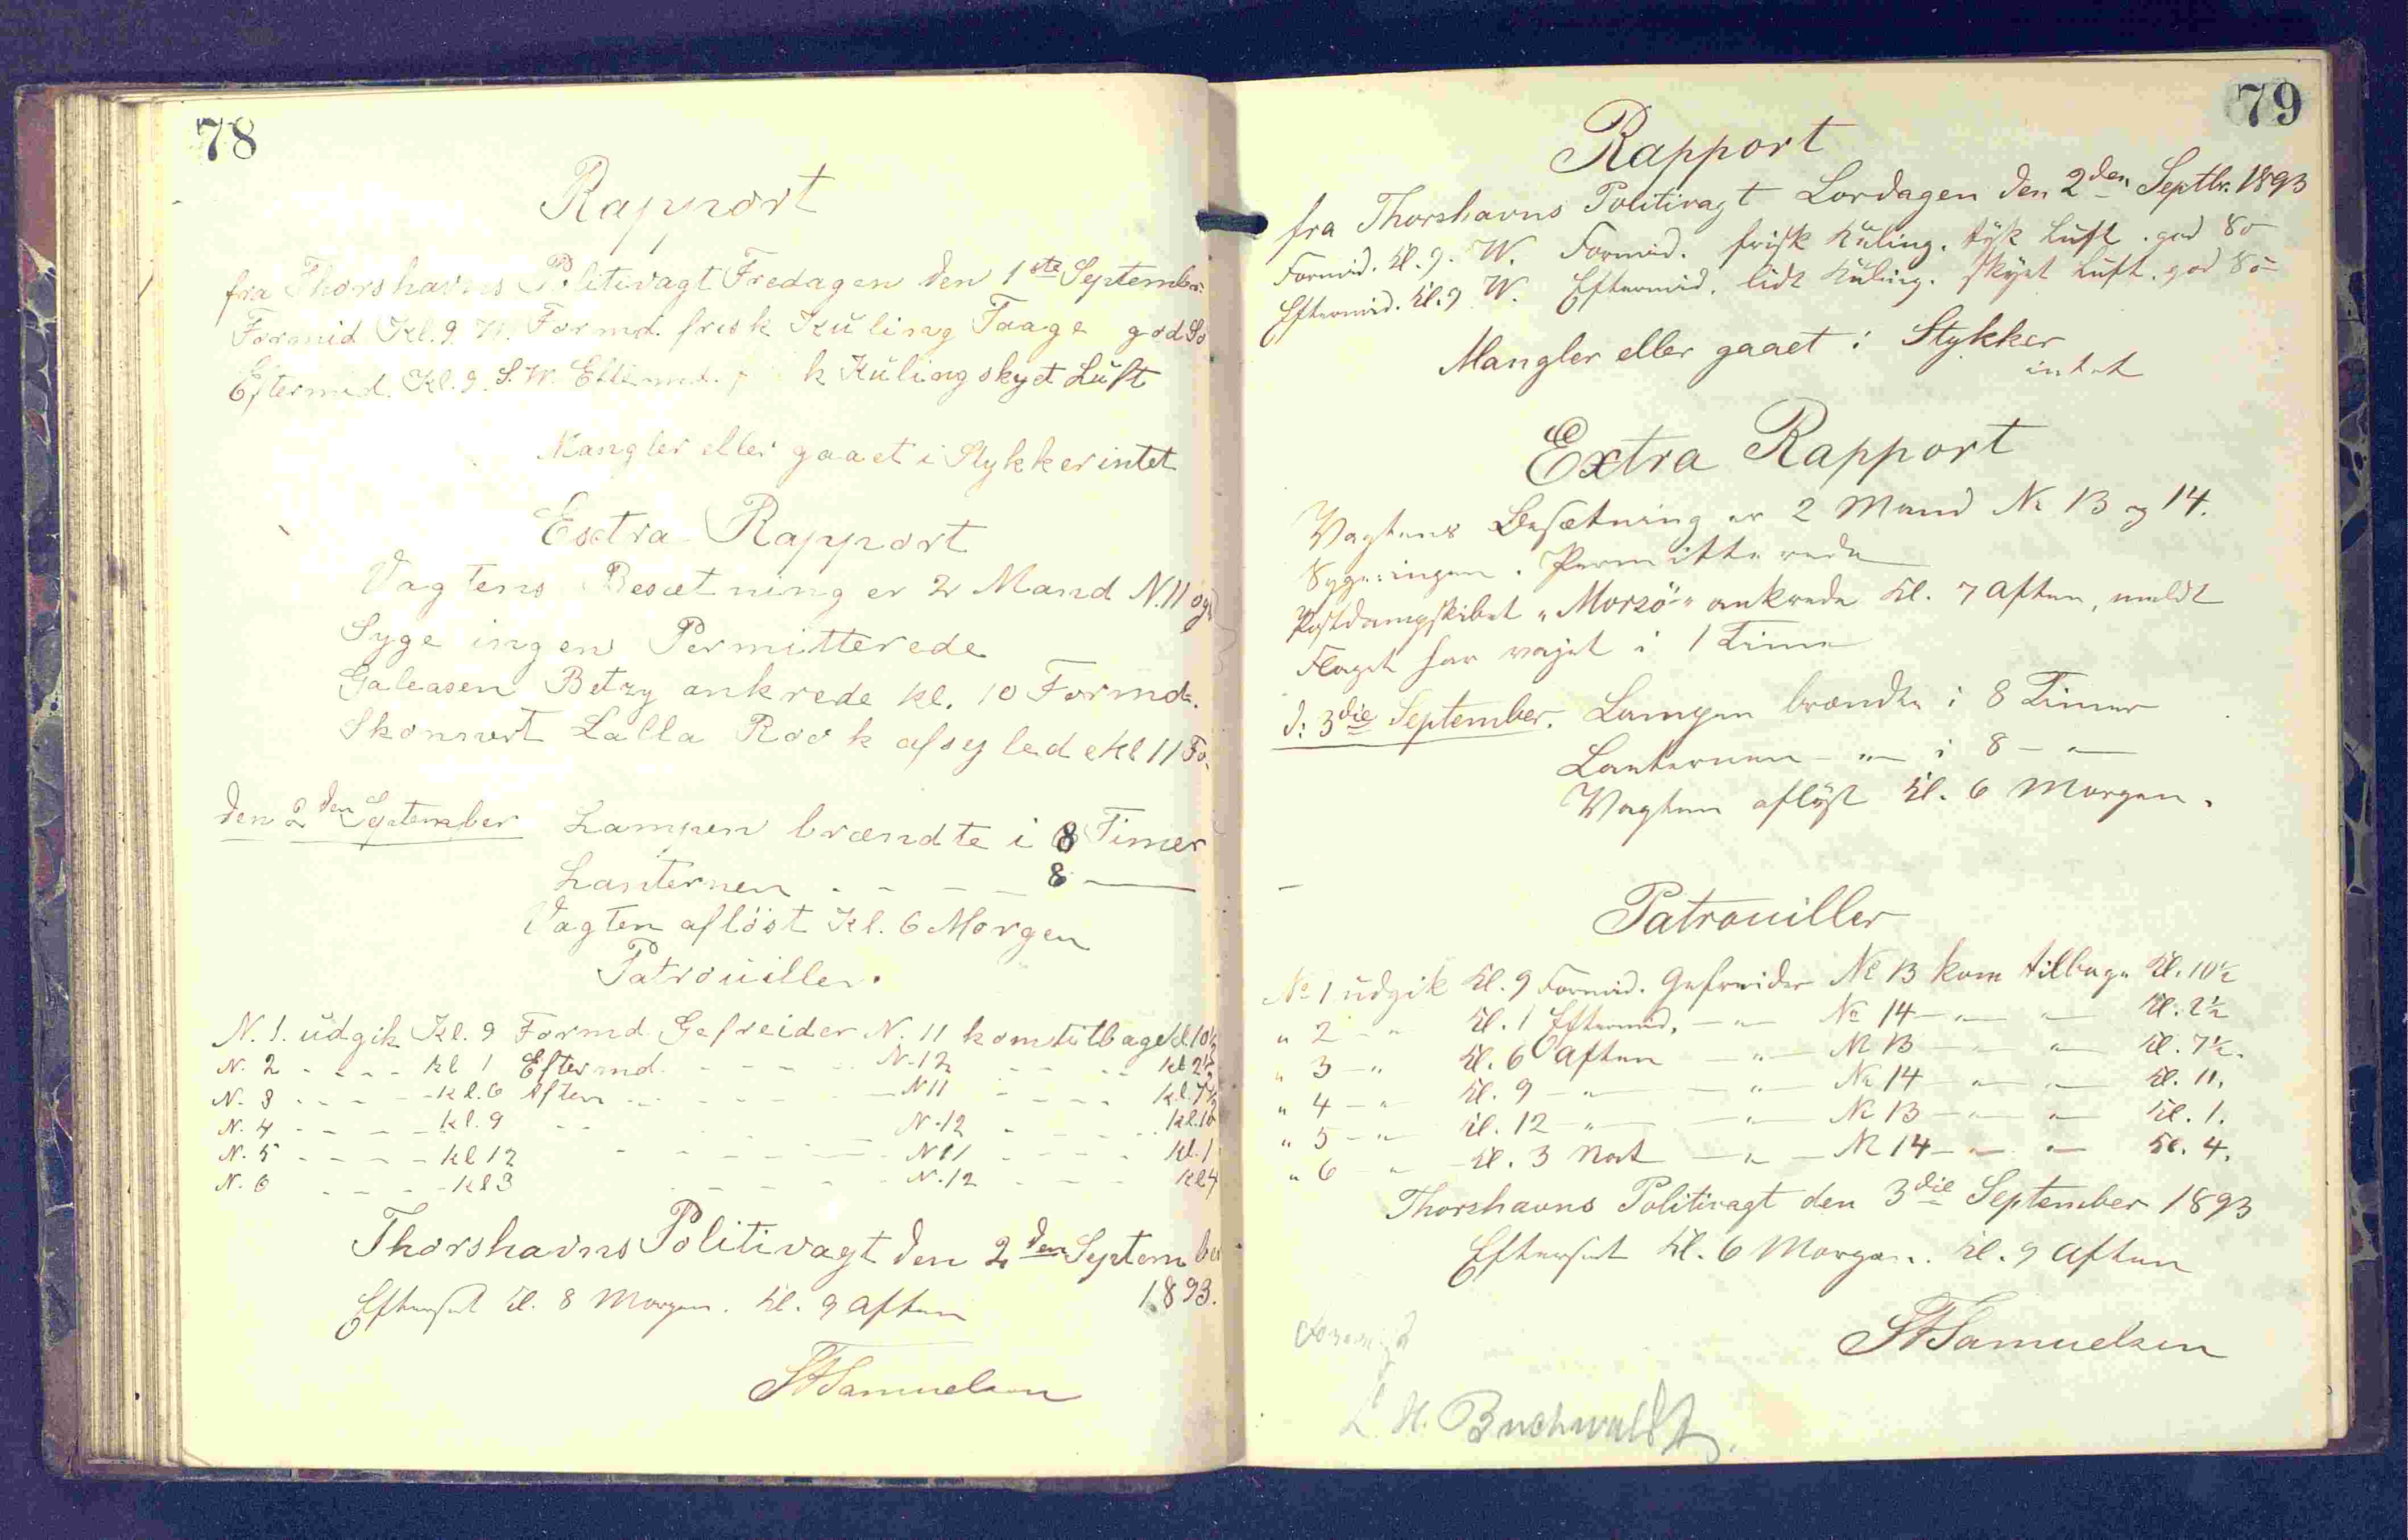 78
Rapport
fra Thorshavns Politivagt Fredagen den 1ste September
Formid Kl. 9. W. Formd. frisk Kuling Taage god Sö
Eftermid. Kl. 9. S. W. Eftermd. k Kuling skyet Luft
Mangler eller gaaet i Stykker intet
Extra Rapport
Vagtens Besætning er 2 Mand N. 11 og
Syge ingen Permitterede
Galeasen Betzy ankrede kl. 10 Formd.
Skonnert Lalla Rook afseylede kl 11 Fo.
den 2den September Lampen brændte i 8 Timer
Lanternen - - - - 8 —
Vagten aflöst Kl. 6 Morgen
Patrouiller.
N. 1. udgik Kl. 9 Formd Gefreider N. 11 kom tilbage Kl. 10½
N. 2 - - - - kl 1 Eftermd. - - - - N. 12 - - - - kl 2½
N. 3 - - - - kl. 6 Aften - - - - N 11 - - - - kl. 7½
N. 4 - - - - kl. 9 - - - - N. 12 - - - - kl. 10
N. 5 - - - - kl 12 - - - - N 11 - - - - kl. 1
N. 6 - - - - kl 3 - - - - N. 12 - - - - kl 4
Thorshavns Politivagt den 2den September
1893.
Efterseet Kl. 8 Morgen. Kl. 9 Aften
Samuelsen
79
Rapport
fra Thorshavns Politivagt Lordagen den 2den Septbr. 1893
Formid. Kl. 9. W. Formid. frisk Kuling. tyk Luft. god Sö
Eftermid. Kl. 9 W. Eftermid. lidt Kuling. skyet Luft. god Sö
Mangler eller gaaet i Stykker
intet
Extra Rapport
Vagtens Besætning er 2 Mand No 13 og 14.
Syge: ingen. Permitterede
Postdampskibet „Morsö“ ankrede Kl. 7 Aften, meldt
Flaget har vajet i 1 Time
d: 3die September. Lampen brændte i 8 Timer
Lanternen — " — i 8 — " —
Vagten aflöst Kl. 6 Morgen.
Patrouiller
No 1 udgik Kl. 9 Formid. Gefreider No 13 kom tilbage Kl. 10½
" 2 — " Kl. 1 Eftermid. — " — No 14 — " — " — Kl. 2½
" 3 — " Kl. 6 Aften — " — No 13 — " — " — Kl. 7½.
" 4 — " Kl. 9 — " — — " — No 14 — " — " — Kl. 11.
" 5 — " Kl. 12 — " — — " — No 13 — " — " — Kl. 1.
" 6 — " Kl. 3 Nat — " — No 14 — " — " — Kl. 4.
Thorshavns Politivagt den 3die September 1893
Efterseet Kl. 6 Morgen. Kl. 9 Aften
Samuelsen
L. H. Buchwaldt.